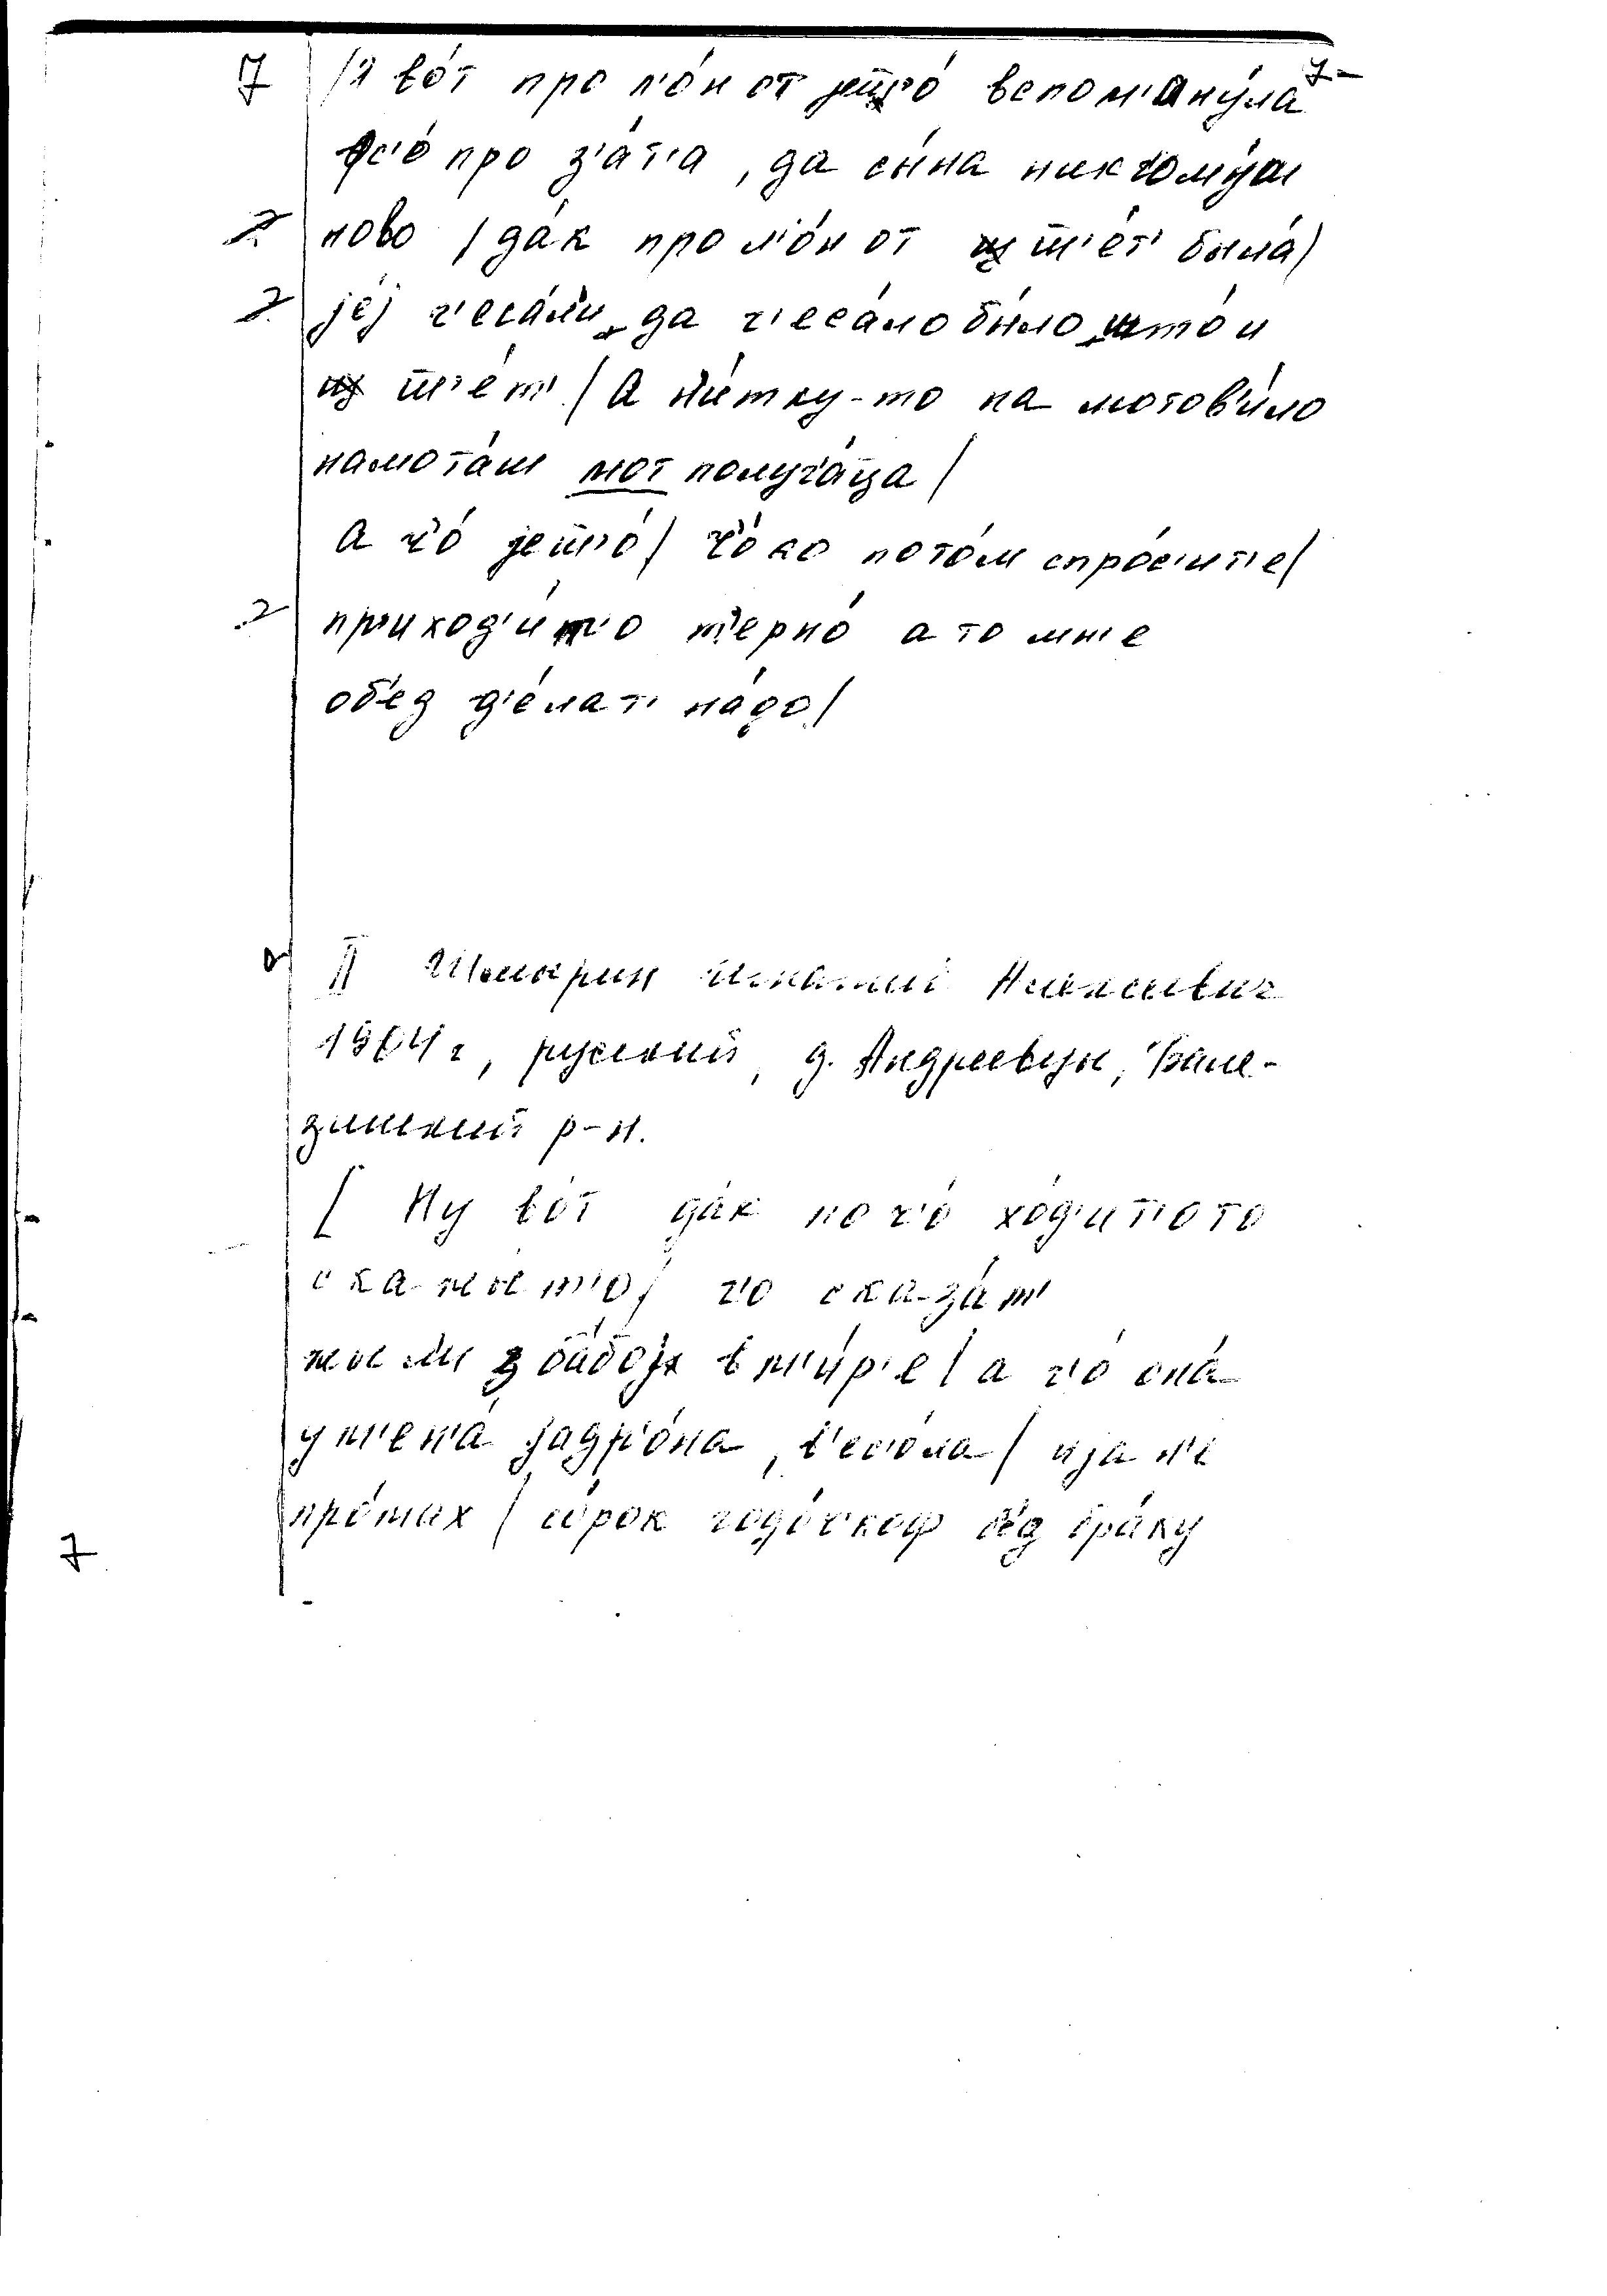 7 /я во́т про л'о́н от јешʼо́ вспом'ану́ла 7-
фс'о́ про з'а́т'а, да сы́на никчому́ш
ново / да́к про л'о́н от ш'е́т' была́/
је́ј ч'еса́ли да ч'еса́ло бы́ло што́ и
ш'е́т' / А ни́тку-то на мотов'и́ло
намота́ш мот получ'а́ца /
а ч'о́ јешʼо́ / ч'о́ ко потом спро́с'ит'е /
приход'и́т'о т'ерно́ а то мн'е
об'ед д'е́лат' на́до /
II Игнатий Алексеевич
1904 г, русский, д. Андреевцы, Бале-
зинский р-н.
[ Ну во́т да́к по ч'о́ хо́д'ит'ото
скажыт'о / ч'о сказа́т'
жыли з ба́бој в м'и́р'е / а ч'о́ она́
у м'ен'а́ јадр'о́на, в'ес'о́ла / и ја н'е
про́мах / со́рок годо́ч'коф б'ед бра́ку
7